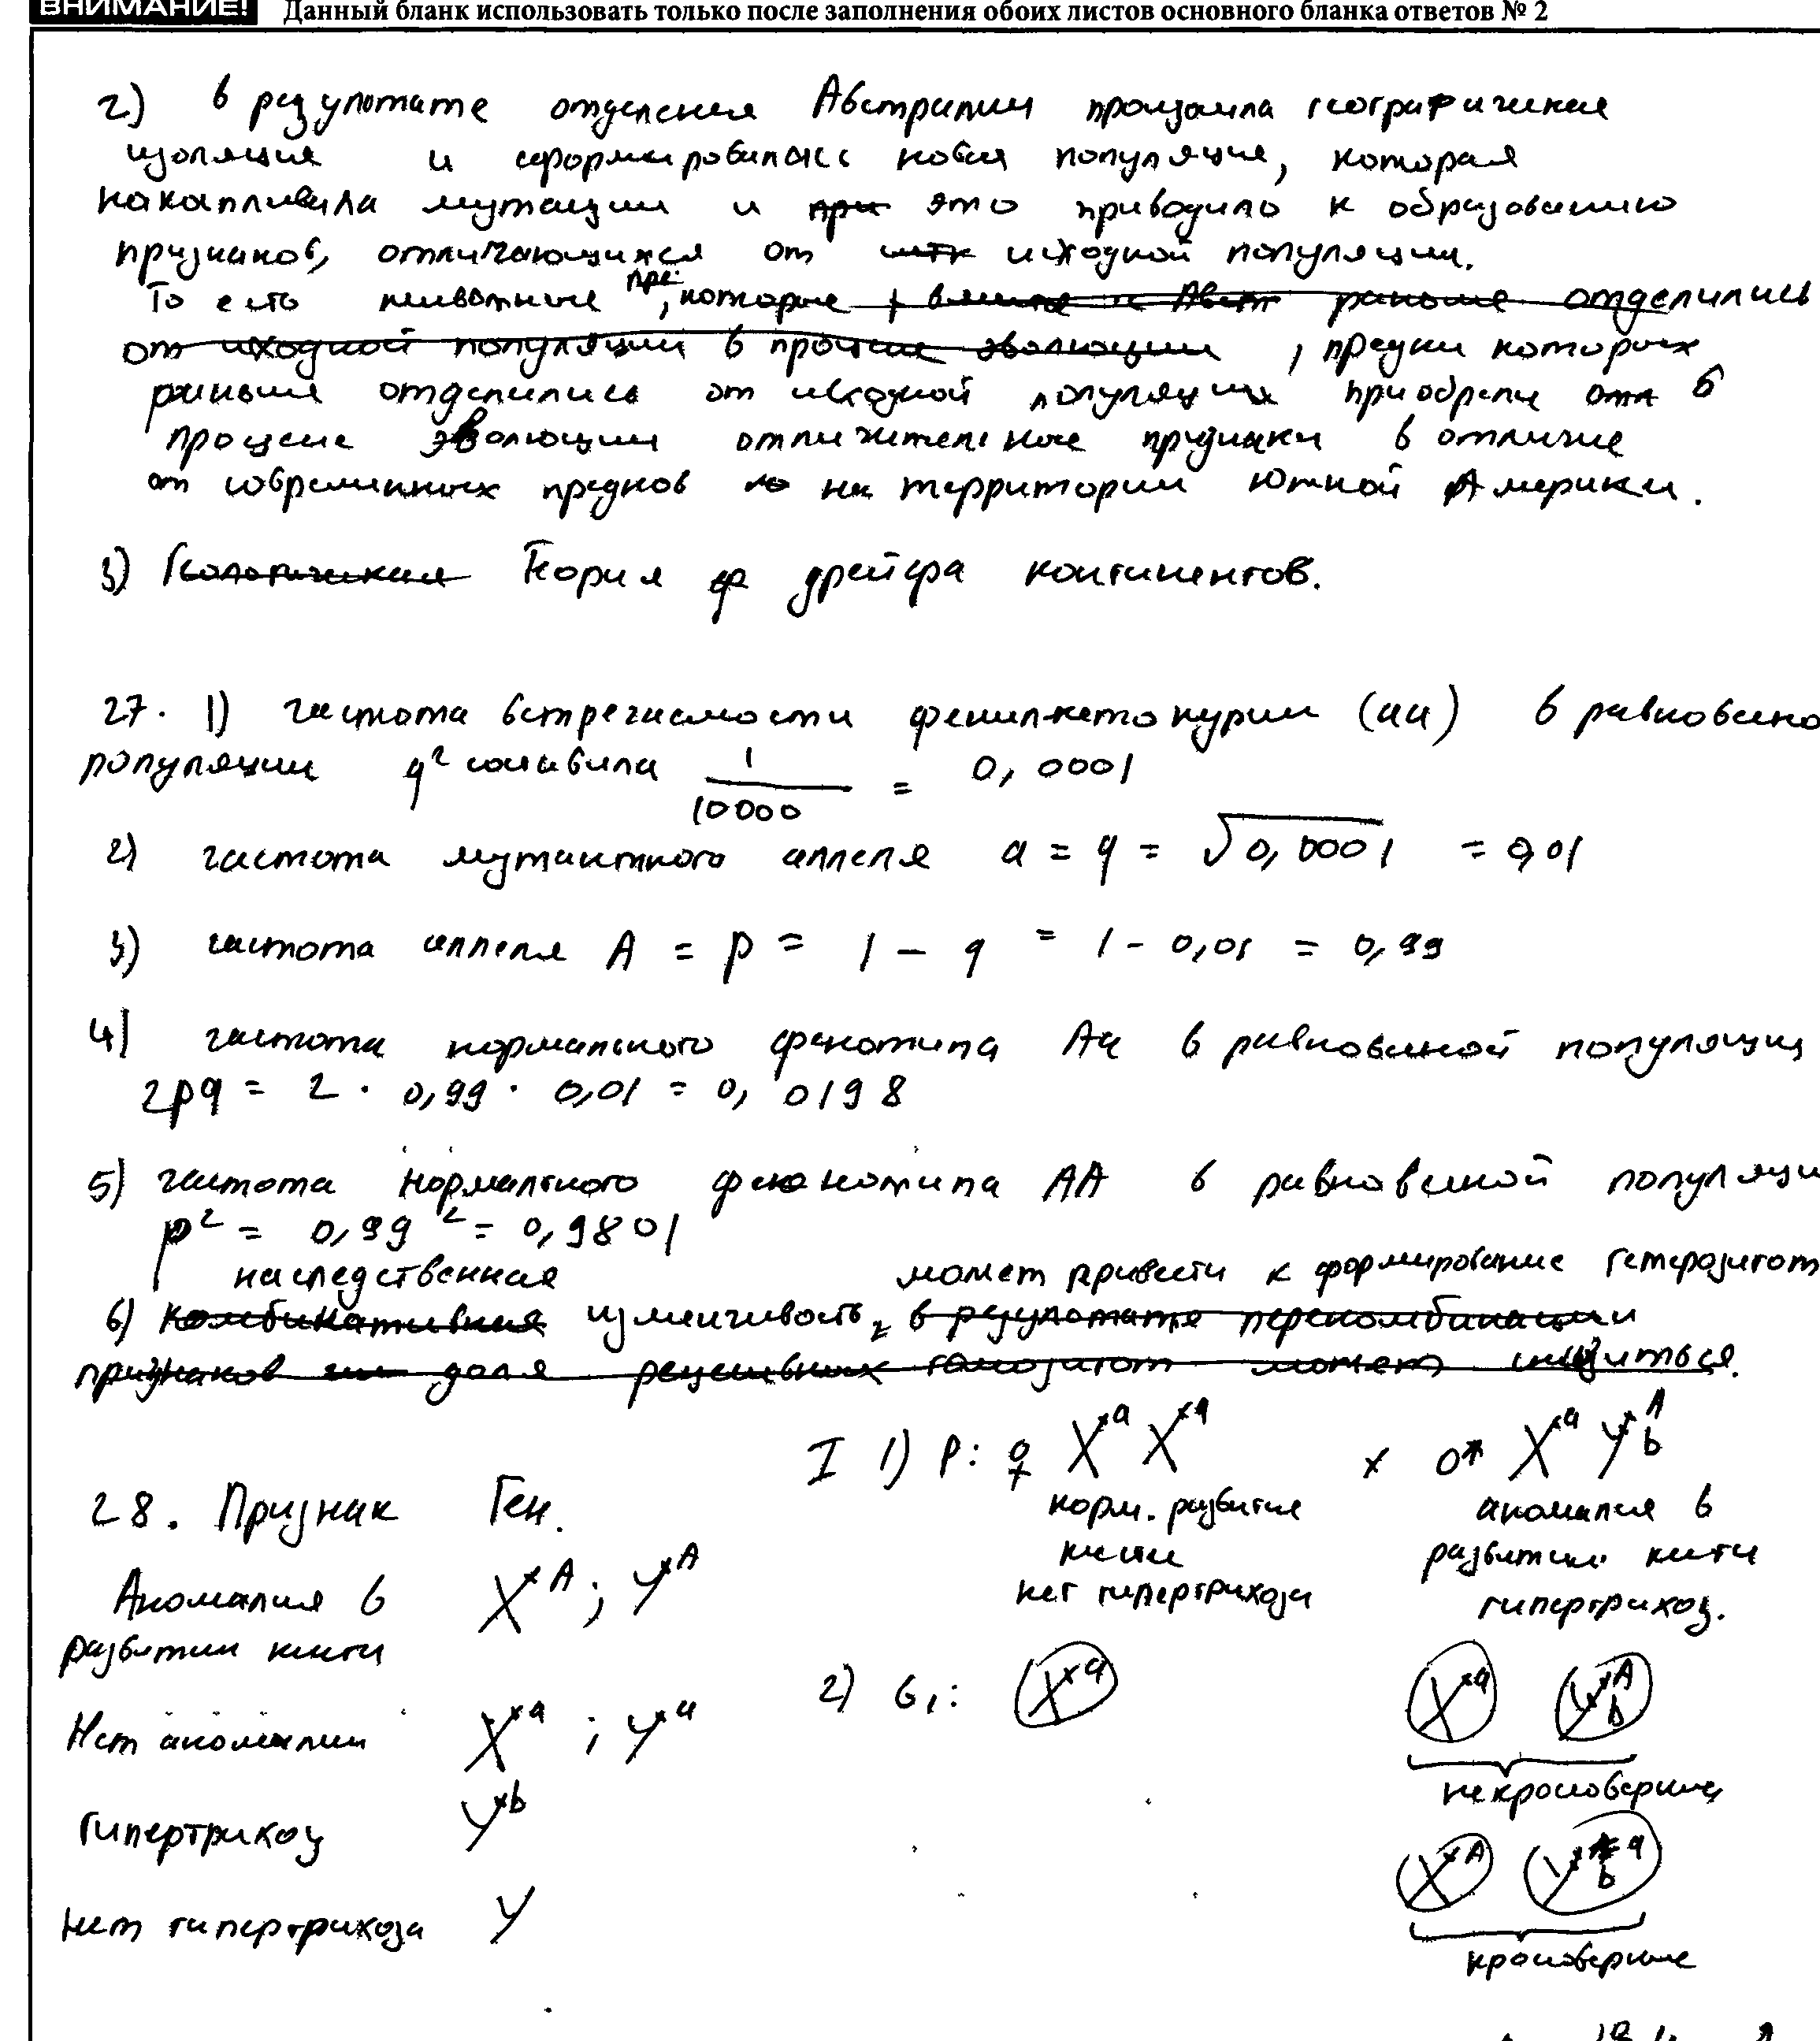 ВНИМАНИЕ! Данный бланк использовать только после заполнения обоих листов основного бланка ответов № 2
2) в результате отделения Австралии произошла географическая
изоляция и сформировалась новая популяция, которая
накапливала мутации и при это приводило к образованию
признаков, отличающихся от исходной популяции.
То есть животные, которые раньше отделились
от исходной популяции в процессе эволюции, предки которых
раньше отделились от исходной популяции приобрели в
процессе эволюции отличительные признаки в отличие
от современных предков на территории Южной Америки.
3) Геологическая Теория дрейфа континентов.
27. 1) частота встречаемости фенилкетонурии (аа) в равновесно
популяции q² составила 1/10000 = 0,0001
2) частота мутантного аллеля a = q = √0,0001 = 0,01
3) частота аллеля A = p = 1 - q = 1 - 0,01 = 0,99
4) частота нормального фенотипа Аа в равновесной популяции
2pq = 2 · 0,99 · 0,01 = 0,0198
5) частота нормального фенотипа АА в равновесной популяци
p² = 0,99² = 0,9801
наследственная может привести к формирование гетерозигот
6) комбинативная изменчивость, в результате перекомбинации
признаков доля рецессивных гомозигот может снизиться.
I 1) P: ♀ XᵃXᵃ x ♂ XᵃYᴬb
28. Признак Ген.
норм. развитие аномалия в
кисти развитии кисти
нет гипертрихоза гипертрихоз.
Аномалия в Xᴬ; Yᴬ
развитии кисти
2) G₁: Xᵃ Xᵃ Yᴬb
Нет аномалии Xᵃ; Yᵃ
некроссоверные
Гипертрихоз Yᵇ
Xᴬ Yᵃb
Нет гипертрихоза Y
кроссоверные